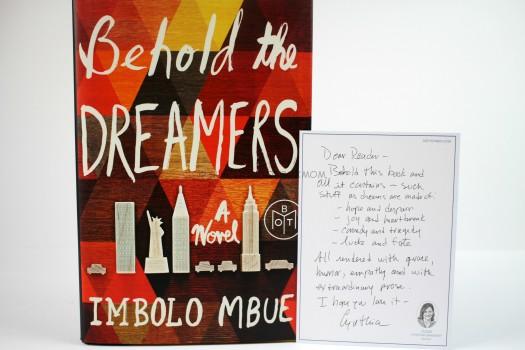 Behold the
DREAMERS
A
Novel
B
M
OT
IMBOLO MBUE
Dear Reader -
Behold this book and
all it contains - such
stuff as dreams are made of:
- hope and despair
- joy and heartbreak
- comedy and tragedy
- luck and fate
All rendered with grace,
humor, empathy and with
extraordinary prose.
I hope you love it -
Cynthia
MOM